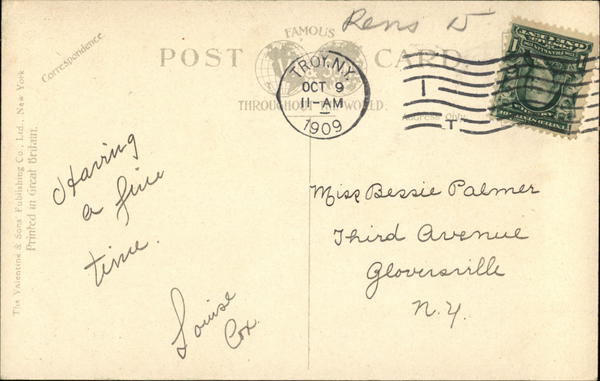 Rens D
FAMOUS
POST CARD
THROUGHOUT THE WORLD.
Correspondence
Address Only.
The Valentine & Sons' Publishing Co., Ltd., New York
Printed in Great Britain.
TROY, N.Y.
OCT 9
11-AM
1909
1
T
Having
a fine
time.
Louise
Cox.
Miss Bessie Palmer
Third Avenue
Gloversville
N.Y.